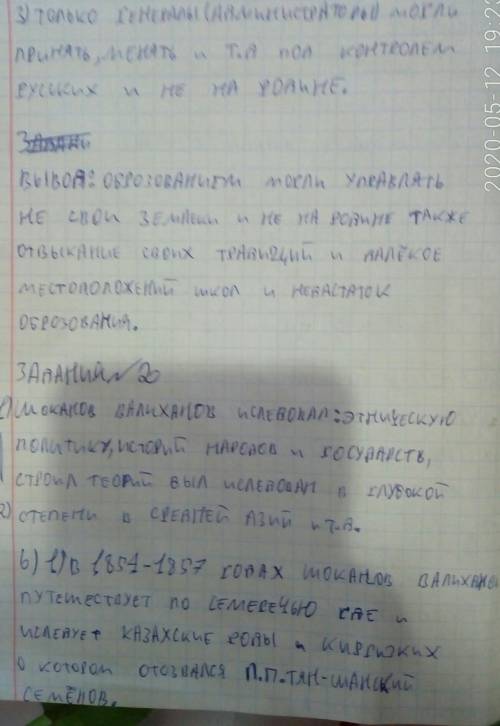 3) ТОЛЬКО ГЕНЕРАЛЫ (АДМИНИСТРАТОРЫ) МОГЛИ
ПРИНЯТЬ, МЕНЯТЬ И Т.Д ПОД КОНТРОЛЕМ
РУСКИХ И НЕ НА РОДИНЕ.
ВЫВОД: ОБРОЗОВАНИЕМ МОГЛИ УПРАВЛЯТЬ
НЕ СВОИ ЗЕМЛЕЙ И НЕ НА РОДИНЕ ТАКЖЕ
ОТВЫКАНИЕ СВОИХ ТРАДИЦИЙ И ДАЛЁКОЕ
МЕСТОПОЛОЖЕНИЙ ШКОЛ И НЕДАСТАТОК
ОБРОЗОВАНИЯ.
ЗАДАНИЙ №2
1) ШОКАНОВ ВАЛИХАНОВ ИСЛЕДОВАЛ: ЭТНИЧЕСКУЮ
ПОЛИТИКУ, ИСТОРИЙ НАРОДОВ И ГОСУДАРСТВ,
СТРОИЛ ТЕОРИЙ БЫЛ ИСЛЕДОВАН В ГЛУБОКОЙ
2) СТЕПЕНИ В СРЕДНЕЙ АЗИЙ И Т.Д.
б) 1) В 1851-1857 ГОДАХ ШОКАНОВ ВАЛИХАНЫ
ПУТЕШЕСТВУЕТ ПО СЕМЕРЕЧЬЮ ГДЕ И
ИСЛЕДУЕТ КАЗАХСКИЕ РОДЫ И КИРГИЗКИХ
О КОТОРОМ ОТОЗВАЛСЯ П.П.ТЯН-ШАНСКИЙ
СЕМЁНОВ.
2020-05-12 19:23